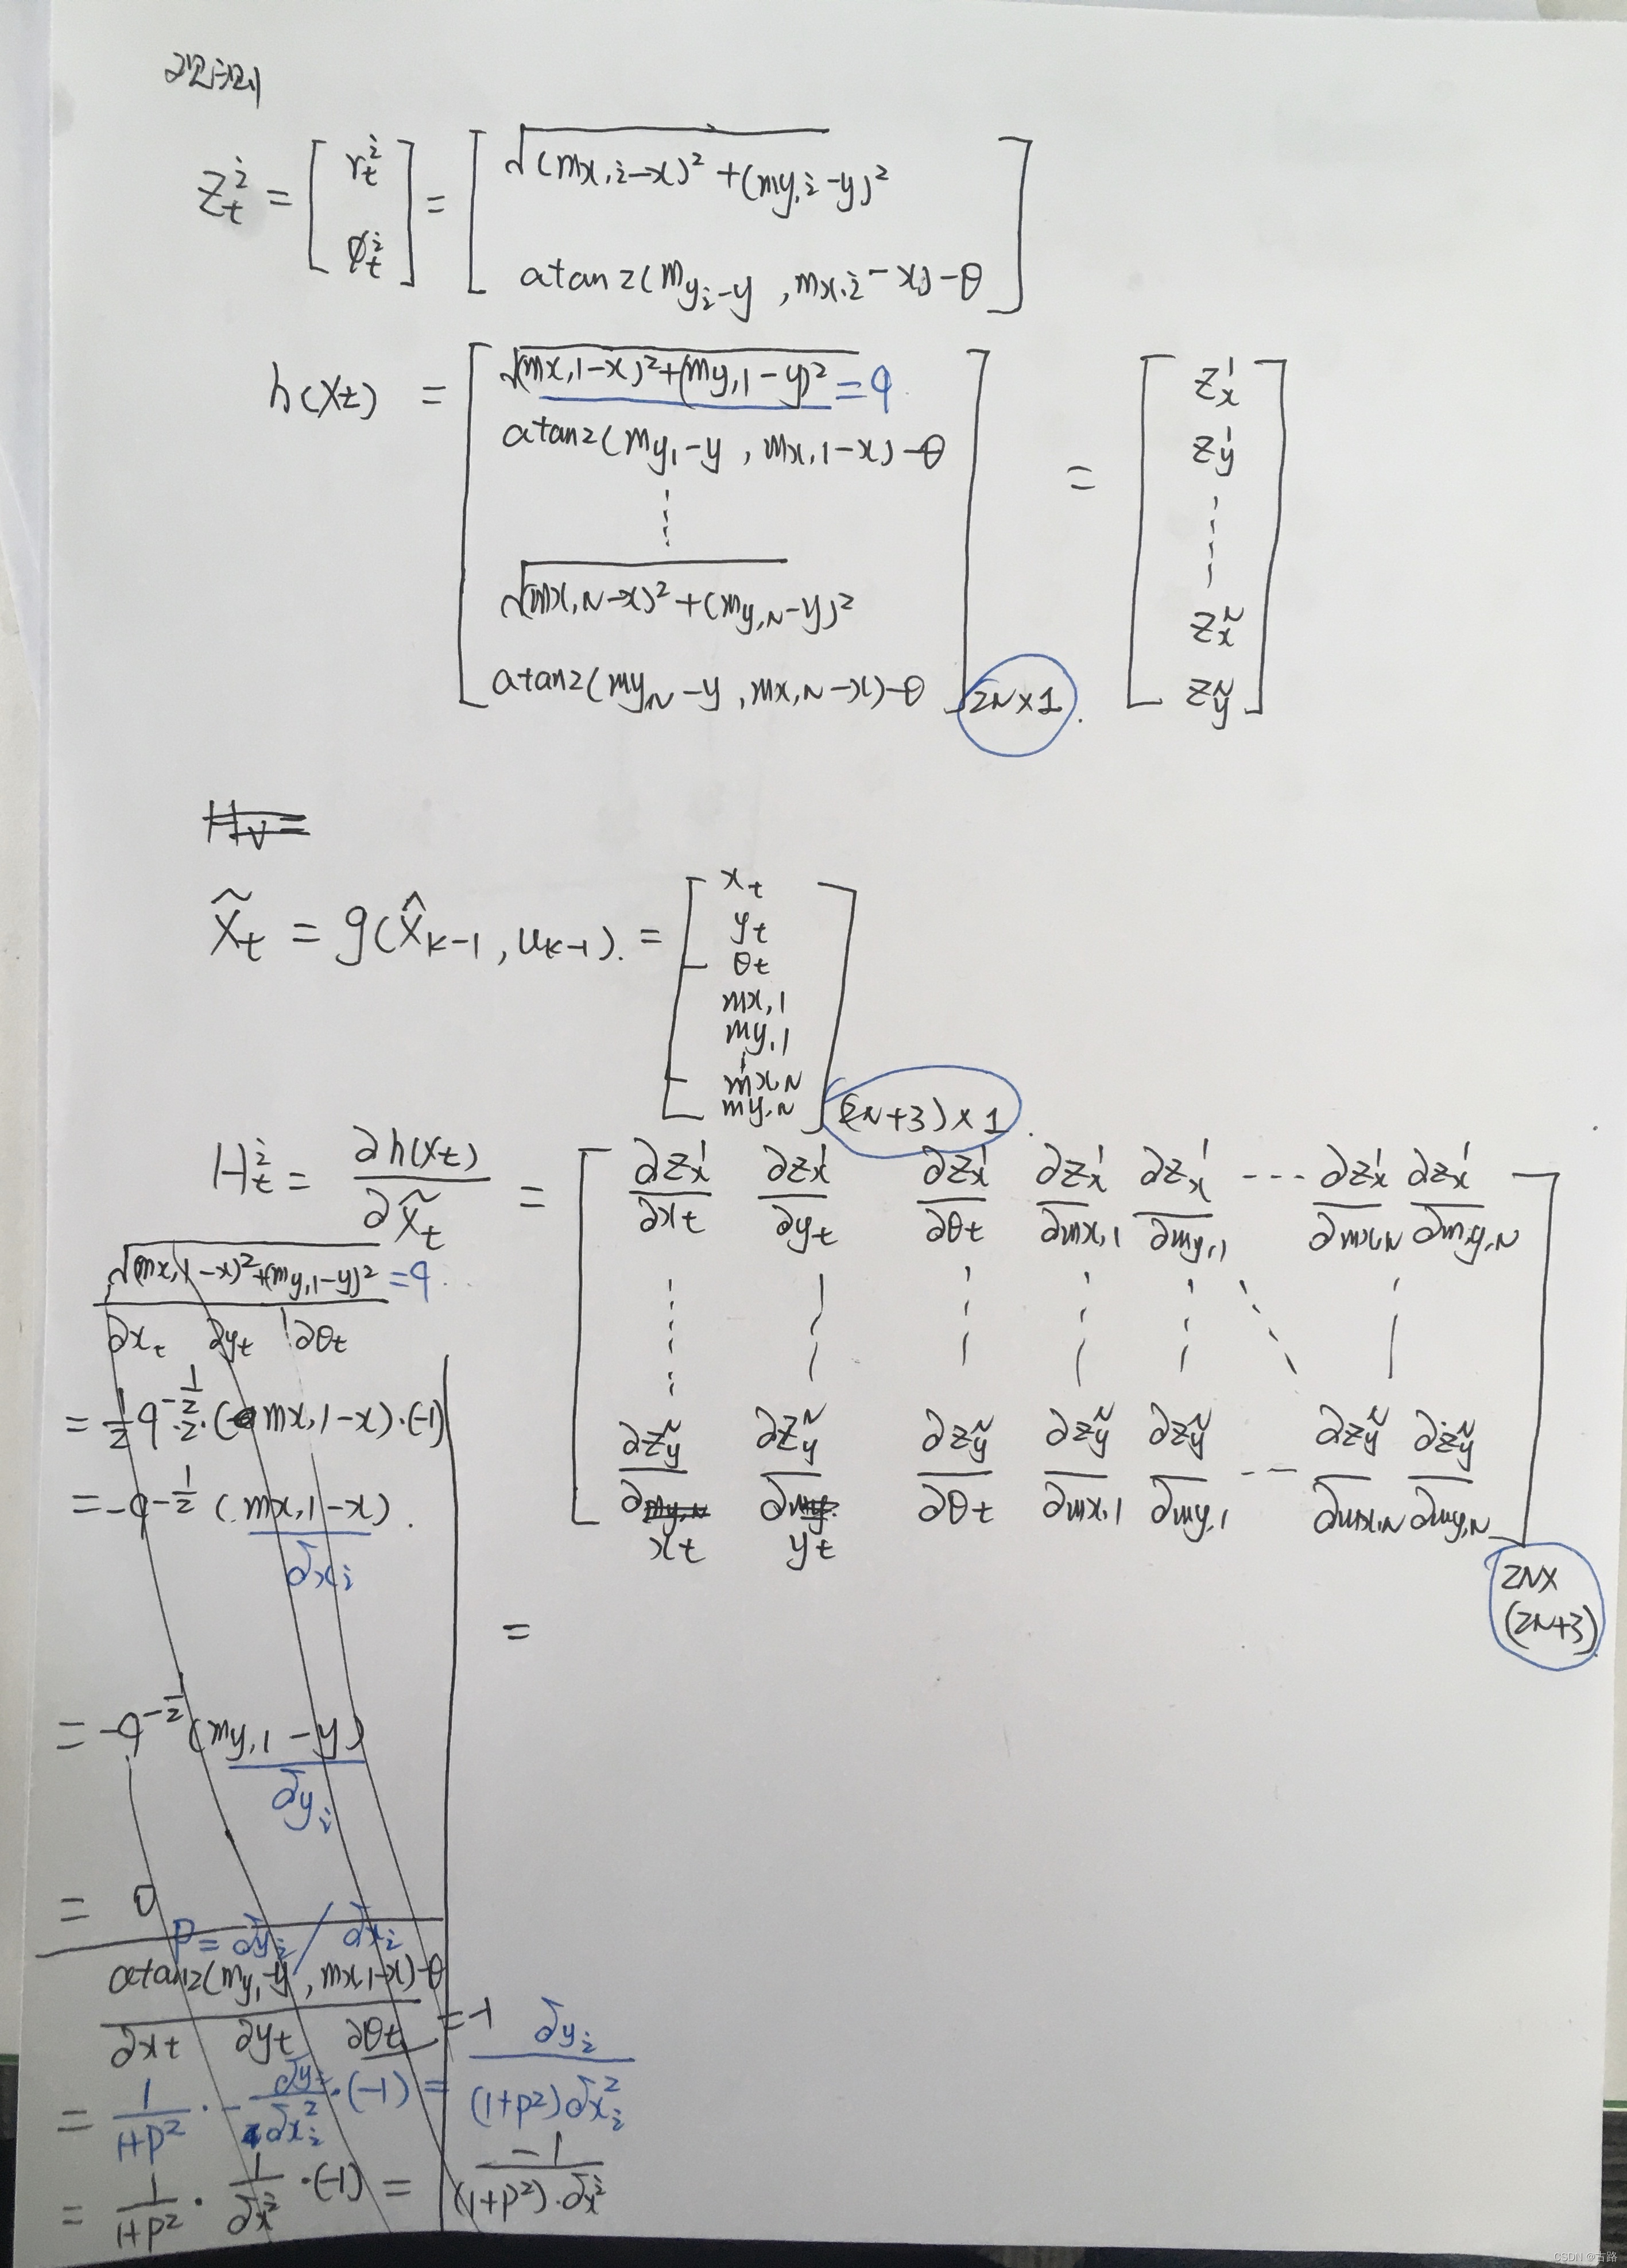 观测
Z_t^i = [ r_t^i ; φ_t^i ] = [ √(mx,i−x)² + (my,i−y)² ; atan2(my_i−y , mx,i−x)−θ ]
h(Xt) = [ √(mx,1−x)²+(my,1−y)² =q
atan2(my,−y , mx,1−x)−θ
⋮
√(mx,N−x)² + (my,N−y)²
atan2(my,N−y , mx,N−x)−θ ] 2N×1 . = [ Z_x^1 ; Z_y^1 ; ⋮ ; Z_x^N ; Z_y^N ]
H_v=
X̃_t = g(X̂_{k−1} , u_{k−1}). = [ x_t
y_t
θ_t
mx,1
my,1
⋮
mx,N
my,N ] (2N+3)×1 .
H_t^i = ∂h(Xt) / ∂X̃_t = [ ∂Z_x^1/∂xt ∂Z_x^1/∂y_t ∂Z_x^1/∂θt ∂Z_x^1/∂mx,1 ∂Z_x^1/∂my,1 --- ∂Z_x^1/∂mx,N ∂Z_x^1/∂my,N
⋮ ⋮ ⋮ ⋮ ⋮ ⋱ ⋮
∂Z_y^N/∂xt ∂Z_y^N/∂yt ∂Z_y^N/∂θt ∂Z_y^N/∂mx,1 ∂Z_y^N/∂my,1 --- ∂Z_y^N/∂mx,N ∂Z_y^N/∂my,N ] 2N×(2N+3)
=
√(mx,1−x)²+(my,1−y)² =q
∂x_t ∂y_t ∂θt
= 1/2 q^{−1/2}·2·(mx,1−x)·(−1)
= −q^{−1/2} (mx,1−x).
δx_i
= −q^{−1/2} (my,1−y)
δy_i
= 0
P = δy_i / δx_i
atan2(my,−y , mx,1−x)−θ
∂xt ∂yt ∂θt = −1
= 1/(1+P²) · − δy_i/δx_i² ·(−1) = δy_i / (1+P²)δx_i²
= 1/(1+P²) · 1/δx^i ·(−1) = −1 / (1+P²)·δx^i
CSDN @古路